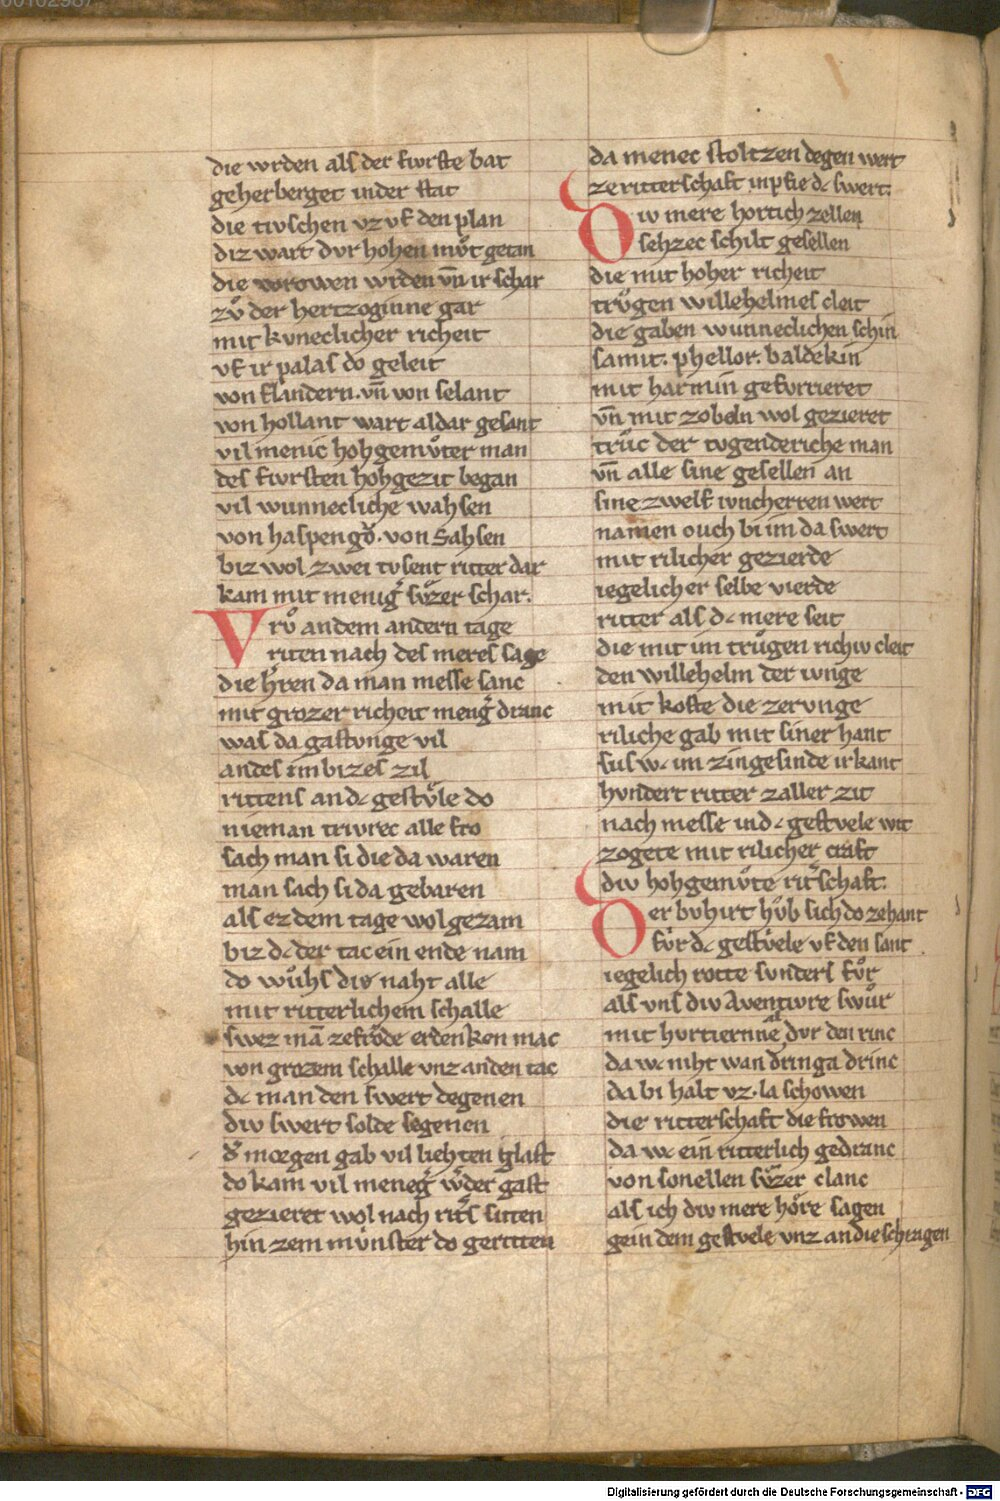 die wrden als der furste bat
geherberget inder stat
die tivschen vz vf den plan
diz wart dvr hohen mvͦt getan
die vrowen wrden vn̄ ir schar
zvͦ der hertzoginne gar
mit kvneclicher richeit
vf ir palas do geleit
von flandern. vn̄ von selant
von hollant wart aldar gesant
vil menic hohgemvͦter man
des fursten hohgezit began
vil wunnecliche wahsen
von haspengoͮ. von Sahsen
biz wol zwei tvsent ritter dar
kam mit menig͛ svͦzer schar.
Vrvͦ andem andern tage
riten nach des meres sage
die h͛ren da man messe sanc
mit grozer richeit meng͛ dranc
was da gastvnge vil
andes imbizes zil
rittens and͛ gestvͦle do
nieman trivrec alle fro
sach man si die da waren
man sach si da gebaren
als ez dem tage wol gezam
biz d͛ der tac ein ende nam
do wuͦhs die naht alle
mit ritterlichem schalle
swez mā zefroͮde erdenken mac
von grozem schalle vnz anden tac
d͛ man den swert degenen
div swert solde segenen
d͛ morgen gab vil liehten glast
do kam vil meneg͛ w͛der gast
gezieret wol nach rit͛s sitten
hin zem mvnster do geritten
da menec stoltzen degen wert
ze ritterschaft inpfie d͛ swert.
Div mere hortich zellen
sehzec schilt gesellen
die mit hoher richeit
trvͦgen willehelmes cleit
die gaben wunneclichen schin
samit. phellor. baldekin
mit harmin gefurrieret
vn̄ mit zobeln wol gezieret
trvͦc der tvgenderiche man
vn̄ alle sine gesellen an
sine zwelf ivncherren wert
namen ouch bi im da swert
mit rilicher gezierde
iegelicher selbe vierde
ritter als d͛ mere seit
die mit im trvͦgen richiv cleit
den willehelm der ivnge
mit koste die zervnge
riliche gab mit siner hant
sus w͛ im zingesinde irkant
hvndert ritter zaller zit
nach messe ind͛ gestvele wit
zogete mit rilicher craft
div hohgemvͦte rit͛schaft.
Der bvhirt hvͦb sich do zehant
fvr d͛ gestvele vf den sant
iegelich rotte svnders fvͦr
als vns div Aventivre swvͦr
mit hvrtiernne al dvr den rinc
da w͛ niht wan dringa drinc
da bi halt vz. la schowen
die ritterschaft die frowen
da w͛ ein ritterlich gedranc
von snellen svͦzer clanc
als ich div mere hoͤre sagen
gein dem gestvele vnz an die schragen
Digitalisierung gefördert durch die Deutsche Forschungsgemeinschaft - DFG